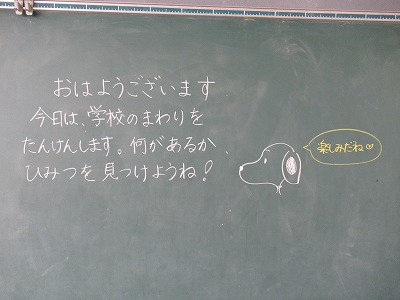 おはようございます
今日は、学校のまわりを
たんけんします。何があるか、
ひみつを見つけようね!
楽しみだね♡